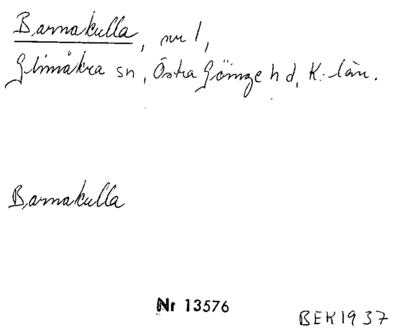 Barnakulla, nr 1,
Glimåkra sn, Östra Göinge hd, K. län.
Barnakulla
Nr 13576
BEK1937